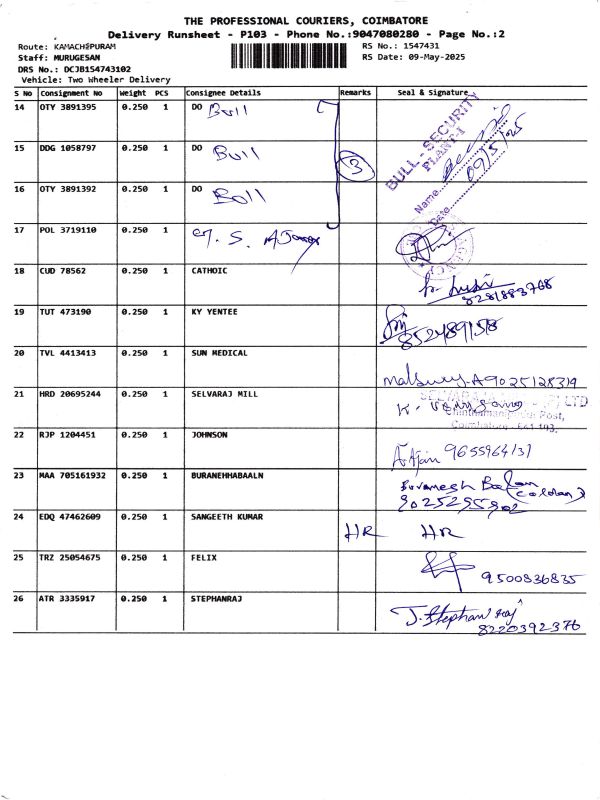 THE PROFESSIONAL COURIERS, COIMBATORE
Delivery Runsheet - P103 - Phone No.:9047080280 - Page No.:2
Route: KAMACHIPURAM
RS No.: 1547431
Staff: MURUGESAN
RS Date: 09-May-2025
DRS No.: DCJB154743102
Vehicle: Two Wheeler Delivery
S No Consignment No Weight PCS Consignee Details Remarks Seal & Signature
14 OTY 3891395 0.250 1 DO Bull
BULL - SECURITY
PLANT-I
Name
Date
09/5/25
15 DDG 1058797 0.250 1 DO Bull
3
16 OTY 3891392 0.250 1 DO Bull
17 POL 3719110 0.250 1
18 CUD 78562 0.250 1 CATHOIC
8281883768
19 TUT 473190 0.250 1 KY YENTEE
852489158
20 TVL 4413413 0.250 1 SUN MEDICAL
9025128319
21 HRD 20695244 0.250 1 SELVARAJ MILL
22 RJP 1204451 0.250 1 JOHNSON
9655964131
23 MAA 705161932 0.250 1 BURANEHHABAALN
9025295902
24 EDQ 47462609 0.250 1 SANGEETH KUMAR HR HR
25 TRZ 25054675 0.250 1 FELIX
9500836835
26 ATR 3335917 0.250 1 STEPHANRAJ
J. Stephan raj
8220392376